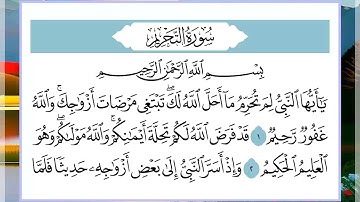 سُورَةُ التَّحْرِيمِ
بِسْمِ اللَّهِ الرَّحْمَٰنِ الرَّحِيمِ
يَا أَيُّهَا النَّبِيُّ لِمَ تُحَرِّمُ مَا أَحَلَّ اللَّهُ لَكَ ۖ تَبْتَغِي مَرْضَاتَ أَزْوَاجِكَ ۚ وَاللَّهُ
غَفُورٌ رَّحِيمٌ ١ قَدْ فَرَضَ اللَّهُ لَكُمْ تَحِلَّةَ أَيْمَانِكُمْ ۚ وَاللَّهُ مَوْلَاكُمْ ۖ وَهُوَ
الْعَلِيمُ الْحَكِيمُ ٢ وَإِذْ أَسَرَّ النَّبِيُّ إِلَىٰ بَعْضِ أَزْوَاجِهِ حَدِيثًا فَلَمَّا